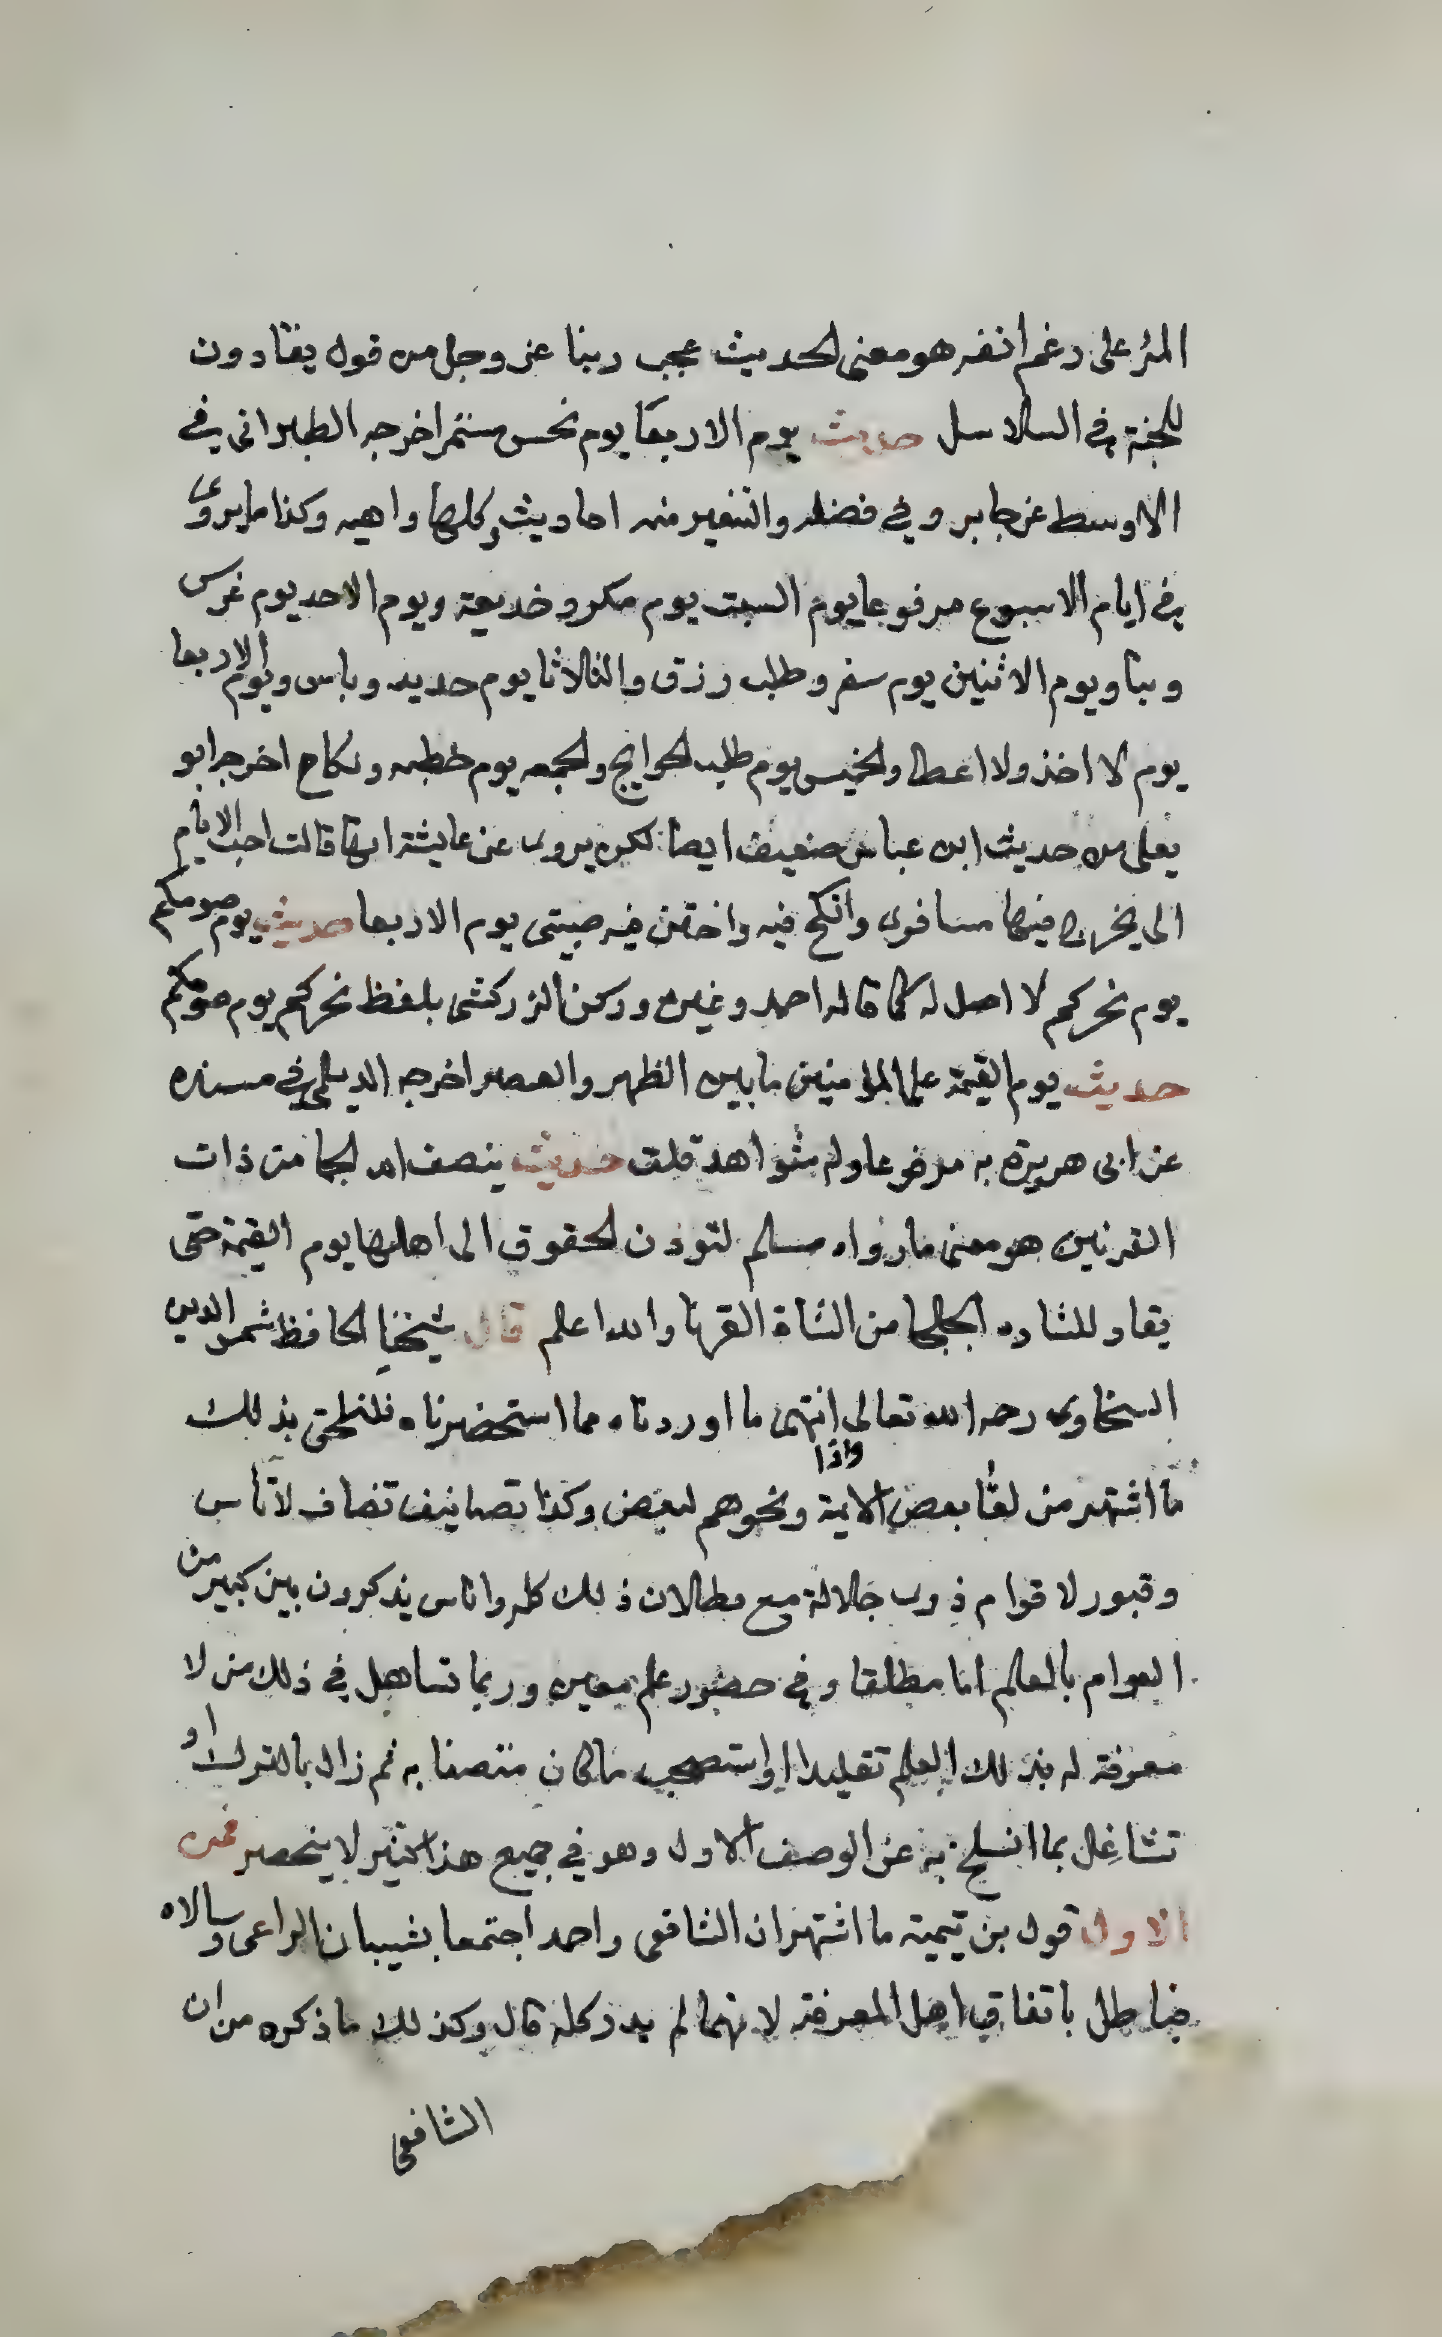 المرء على رغم انفه هو معنى الحديث عجب ربنا عز وجل من قوم يقادون
للجنة في السلاسل حديث يوم الاربعا يوم نحس مستمر اخرجه الطبراني في
الاوسط عن جابر وفي فضله والتنفير منه احاديث وكلها واهيه وكذا ما يروى
في ايام الاسبوع مرفوعا يوم السبت يوم مكر وخديعة ويوم الاحد يوم غرس
وبنا ويوم الاثنين يوم سفر وطلب رزق والثلاثا يوم حديد وباس ويوم الاربعا
يوم لا اخذ ولا اعطا والخميس يوم طلب الحوايج والجمعه يوم خطبه ونكاح اخرجه ابو
يعلى من حديث ابن عباس ضعيف ايضا لكن يروى عن عايشة انها قالت احب الايام
الي يخرج فيها مسافري وانكح فيه واختن فيه صبيتي يوم الاربعا حديث يوم صومكم
يوم نحركم لا اصل له كما قاله احمد وغيره وذكره الزركشي بلفظ نحركم يوم صومكم
حديث يوم القيمة على المؤمنين ما بين الظهر والعصر اخرجه الديلمي في مسنده
عن ابي هريرة به مرفوعا وله شواهد قلت حديث ينصف الله الجما من ذات
القرنين هو معنى ما رواه مسلم لتودن الحقوق الى اهلها يوم القيمة حتى
يقاد للشاه الجلحا من الشاة القرنا والله اعلم قال شيخنا الحافظ شمس الدين
السخاوي رحمه الله تعالى انتهى ما اوردناه مما استحضرناه فلنلحق بذلك
ما اشتهر من لقا بعض الايمة واذا ونحوهم لبعض وكذا تصانيف تضاف لاناس
وقبور لاقوام ذوي جلالة مع بطلان ذلك كله واناس يذكرون بين كبير من
العوام بالعلم اما مطلقا وفي حضور علم معين وربما تساهل في ذلك من لا
معرفة له بذلك العلم تقليدا او استصحب ما كان متصفا به ثم زال بالترك او
تشاغل بما انسلخ به عن الوصف الاول وهو في جميع هذا كثير لا ينحصر فمن
الاول قول بن تيمية ما اشتهر ان الشافعي واحمد اجتمعا بشيبان الراعي وسالاه
فباطل باتفاق اهل المعرفة لانهما لم يدركاه قال وكذلك ما ذكره من ان
الشافعي